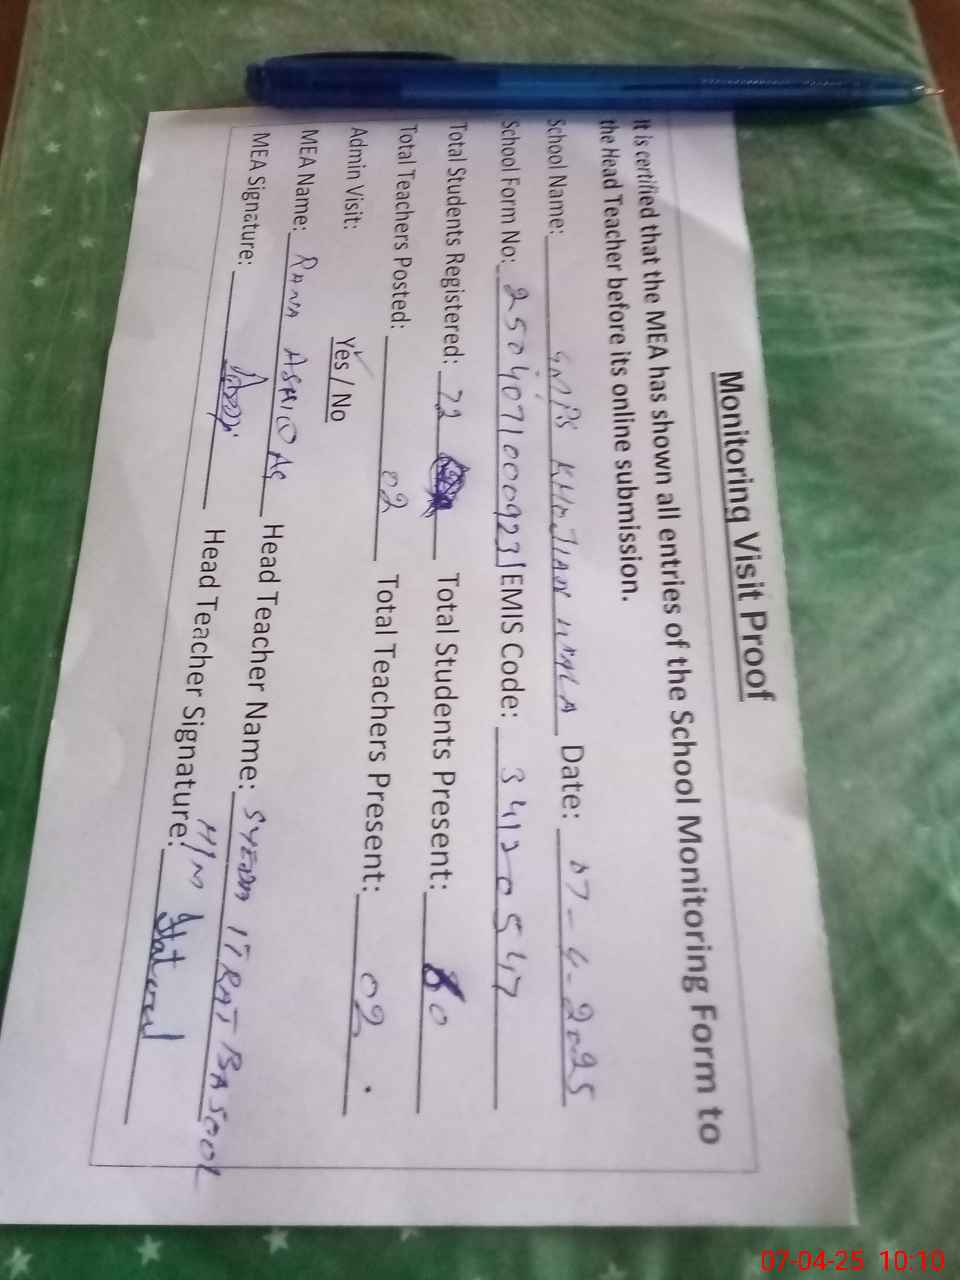 Monitoring Visit Proof
It is certified that the MEA has shown all entries of the School Monitoring Form to
the Head Teacher before its online submission.
School Name: Date: 07-4-2025
School Form No: 25040710009231 EMIS Code: 34120547
Total Students Registered: 72 Total Students Present: 60
Total Teachers Posted: 02 Total Teachers Present: 02
Admin Visit: Yes / No
MEA Name: RANA ASHIQ Head Teacher Name: SYEDA ITRAT BATOOL
MEA Signature: Head Teacher Signature:
07-04-25 10:10